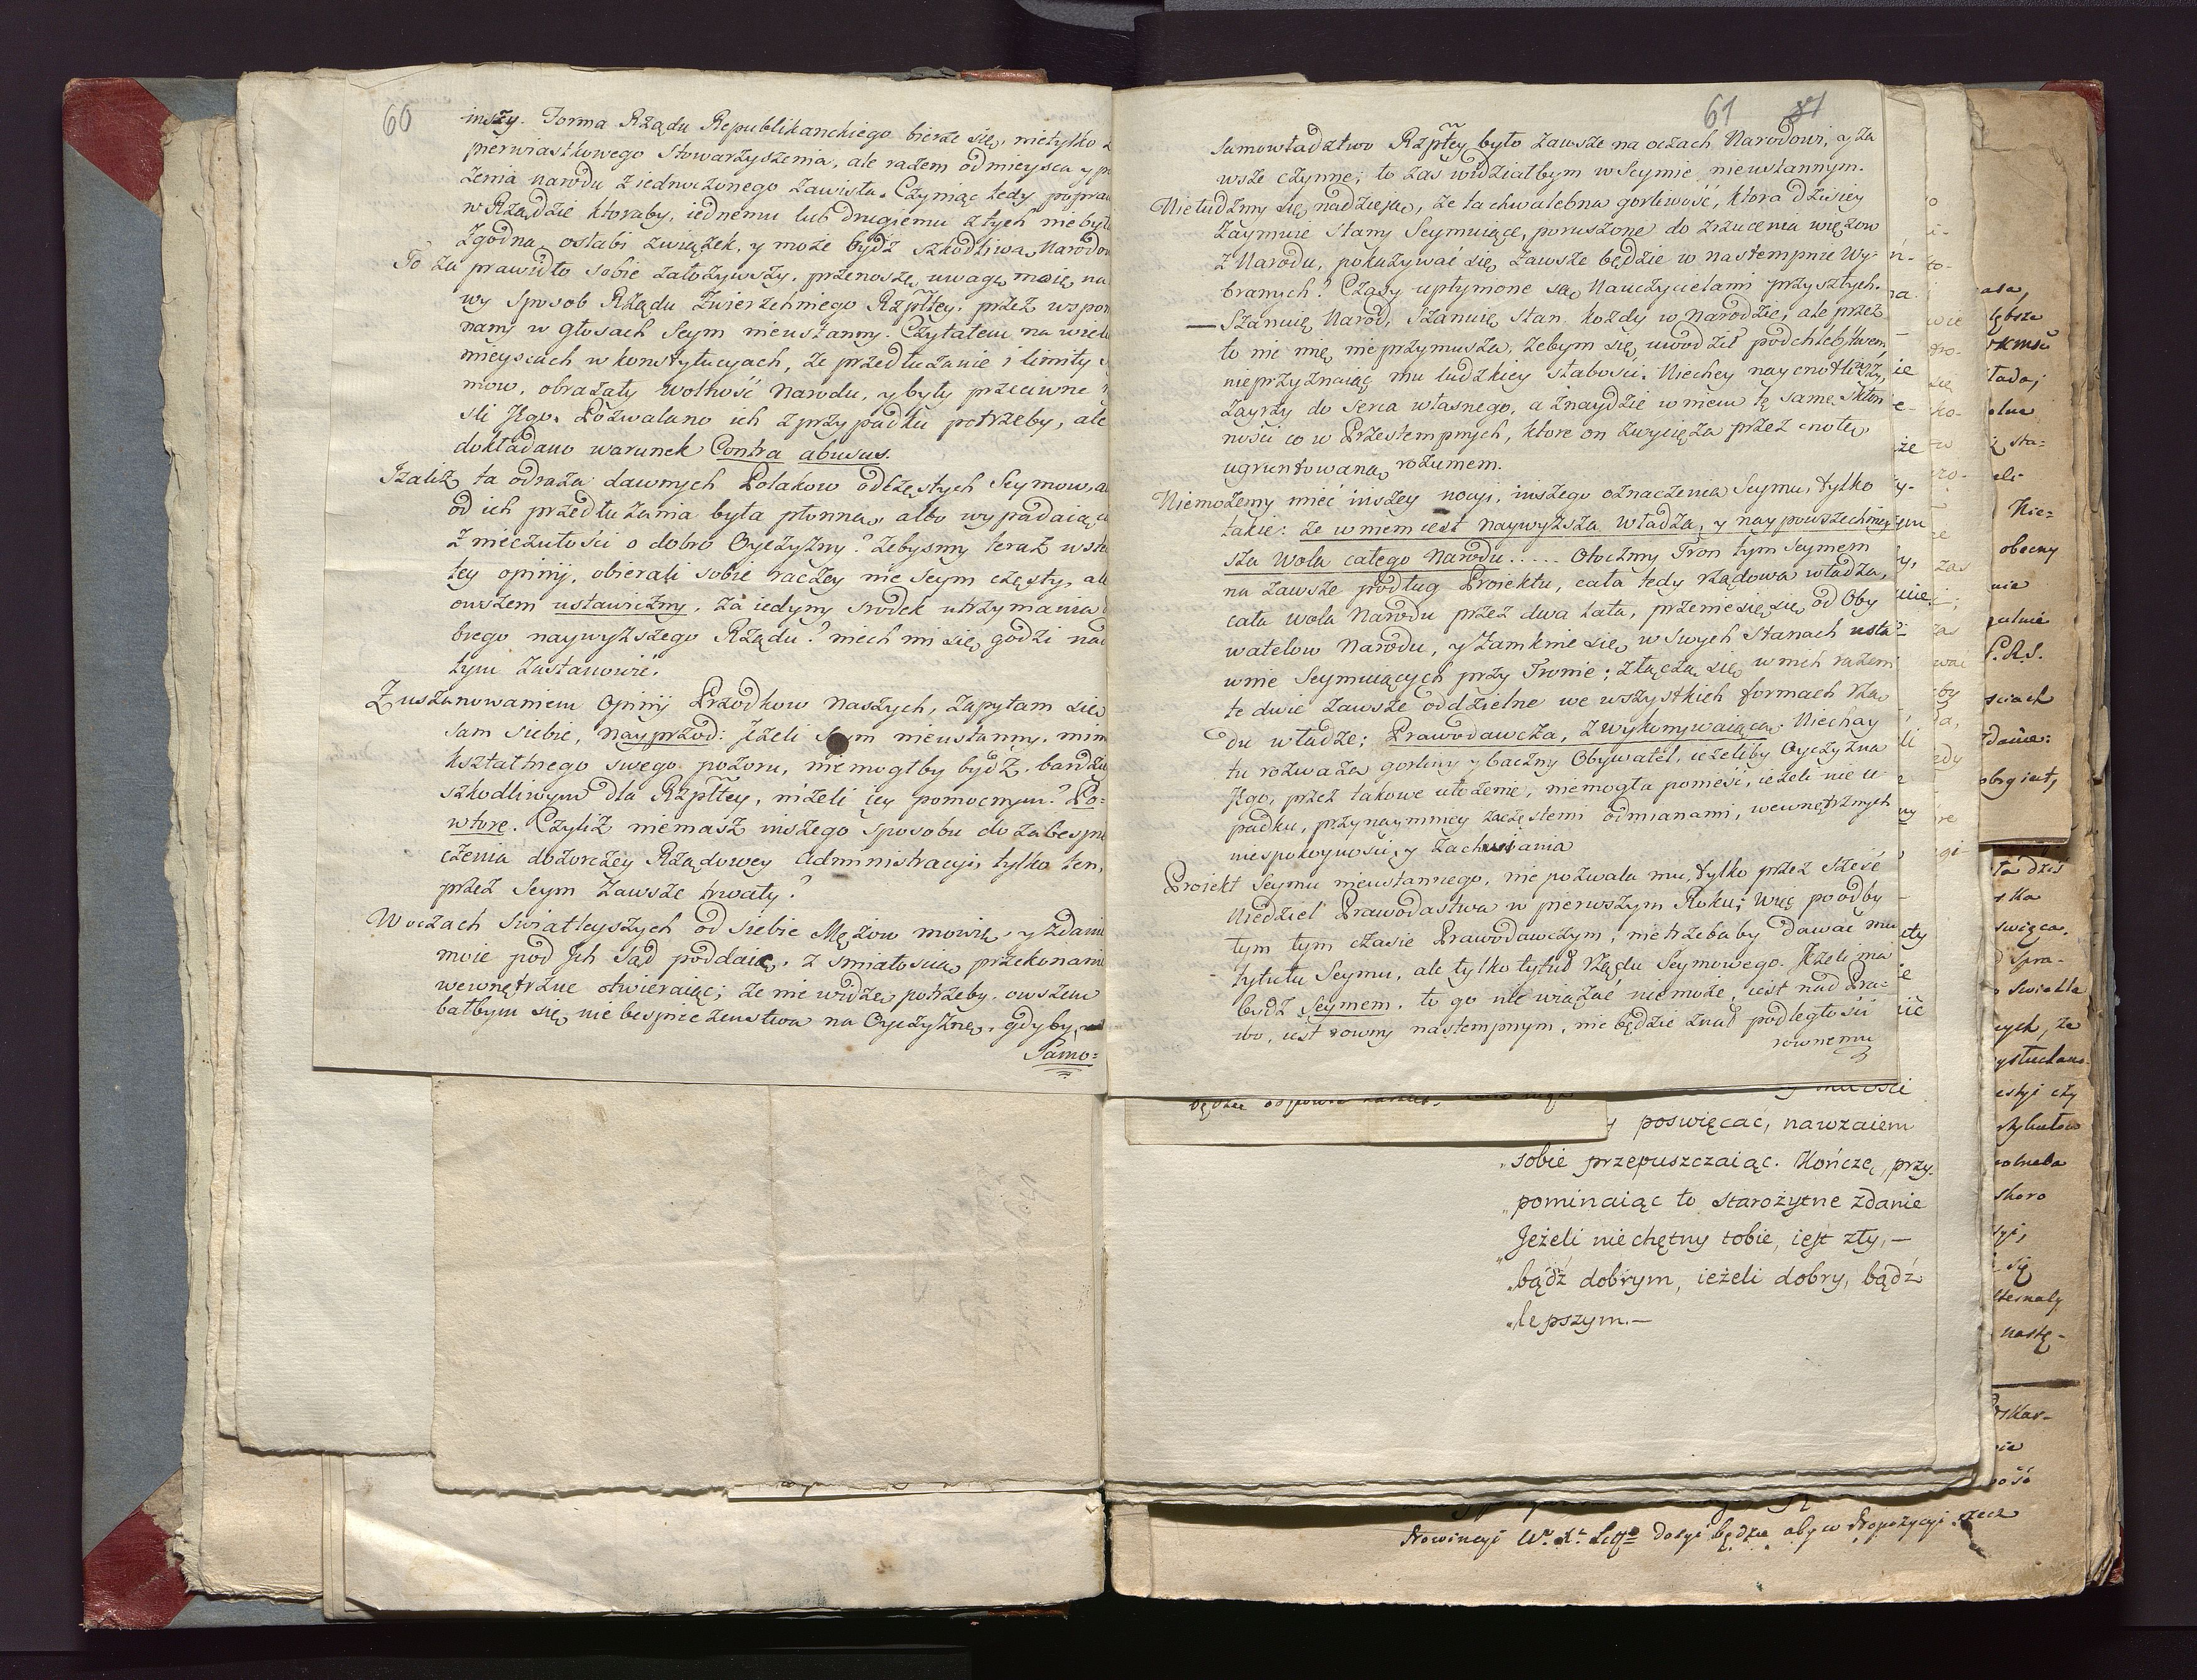 60
inszy. Forma Rządu Republikanckiego bierze się, nietylko z
pierwiastkowego stowarzyszenia, ale razem od mieysca y
żenia narodu ziednoczonego zawisła. Czyniąc tedy popra
w Rządzie ktoraby, iednemu lub drugiemu z tych nie była
zgodna, osłabi związek, y może bydź szkodliwa Narodo
To za prawidło sobie założywszy, przenoszę uwagę moię na
wy sposob Rządu Zwierzchniego Rzpltey, przez wspom
nany w głosach Seym nieustanny. Czytałem na wielu
mieyscach w konstytucyach, że przedłużanie i limity
mow, obrażały wolność Narodu, y były przeciwne
śli Jego. Pozwalano ich z przypadku potrzeby, ale
dokładano warunek Contra abusus.
Jzaliż ta odraza dawnych Polakow od częstych Seymow, a
od ich przedłużania była płonna, albo wypadaiąca
z nieczułości o dobro Oyczyzny? żebyśmy teraz w
tey opinij, obierali sobie raczey nie Seym częsty, ale
owszem ustawiczny, za iedyny srodek utrzymania
brego naywyższego Rządu? niech mi się godzi nad
tym zastanowić.
Z uszanowaniem Opinij Przodkow naszych, zapytam się
sam siebie, nayprzod: Jeżeli Seym nieustanny, mim
kształtnego swego pozoru, niemogłby bydź, bardzi
szkodliwym dla Rzpltey, niżeli iey pomocnym? Po=
wtore. Czyliż niemasz inszego sposobu do zabespie
czenia dozorczey Rządowey Administracyi, tylko ten,
przez Seym zawsze trwały?
W oczach swiatleyszych od siebie Mężow mowię, y zdanie
moie pod Jch Sąd poddaię, z smiałoscią przekonanie
wewnętrzne otwieraiąc; że nie widzę potrzeby, owszem
bałbym się niebespieczenstwa na Oyczyznę, gdyby
Samo=
61 81
Samowładztwo Rzpltey było zawsze na oczach Narodowi, y za
wsze czynne; to zas widziałbym w Seymie nieustannym.
Nie łudźmy się nadzieją, że ta chwalebna gorliwość, ktora dzisiey
zaymuie Stany Seymuiące, poruszone do zrzucenia więzow
z Narodu, pokazywać się zawsze będzie w nastempnie Wy=
branych? Czasy upłynone są Nauczycielami przyszłych.
— Szanuię Narod, Szanuię stan każdy w Narodzie; ale przez
to nie mię nieprzymusza, żebym się uwodził podchlebstwem,
nieprzyznaiąc mu ludzkiey słabosci. Niechey naycnotliwszy,
zayrzy do serca własnego, a znaydzie w niem tę samę skłon
ności co w Przestempnych, ktore on zwycięża przez cnotę
ugruntowaną rozumem.
Niemożemy mieć inszey nocyi, inszego oznaczenia Seymu, tylko
takie: że w niem iest naywyższa władza, y naypowszechniey
sza Wola całego Narodu..... Otoczmy Tron tym Seymem
na zawsze podług Proiektu, cała tedy rządowa władza,
cała wola Narodu przez dwa Lata, przeniesie się od Oby
watelow Narodu, y zamknie się w swych Stanach usta
wnie Seymuiących przy Tronie; złączą się w nich razem
te dwie zawsze oddzielne we wszystkich formach rzą
du władze; Prawodawcza, z wykonywaiącą. Niechay
tu rozważa gorliwy y baczny Obywatel, ieżeliby Oyczyzna
Jego, przez takowe ułożenie, niemogła ponieść, ieżeli nie u
padku, przynaymniey zczęstemi odmianami, wewnętrznych
niespokoyności, y zachwiania
Proiekt Seymu nieustannego, nie pozwala mu, tylko przez sześć
Niedziel Prawodastwa w pierwszym Roku; więc po odby
tym tym czasie Prawodawczym, nietrzebaby dawać mu
tytułu Seymu, ale tylko tytuł Rządu Seymowego. Jeżeli ma
bydź Seymem, to go nic wiązać nie może, iest nad Pra=
wo, iest rowny nastempnym, nie będzie znał podległości
rownemu
poswięcać, nawzaiem
„sobie przepuszczaiąc. Kończę, przy-
„pominaiąc to starożytne zdanie
Jeżeli niechętny tobie, iest zły, —
„bądź dobrym, ieżeli dobry, bądź
„lepszym. —
Prowincyi W. X. Litt dosyć będzie aby w Propozycyi